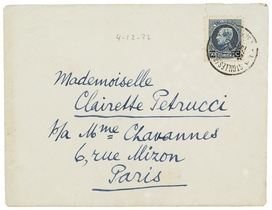 4-12-22
Mademoiselle
Clairette Petrucci
p/a Mme Chavannes
6, rue Mizon
Paris